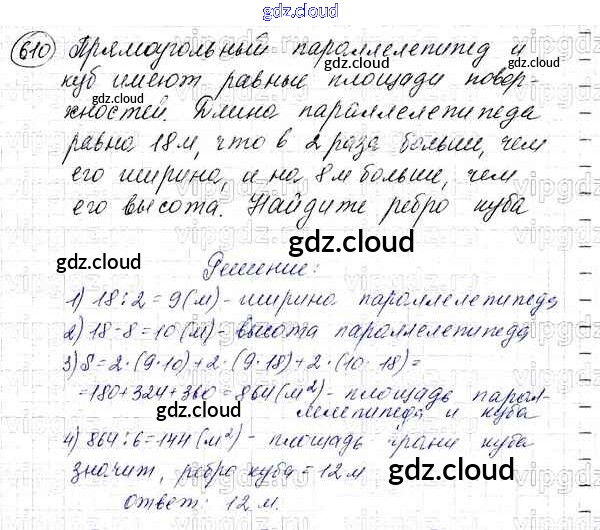 gdz.cloud
610 Прямоугольный параллелепипед и
куб имеют равные площади повер-
хностей. Длина параллелепипеда
равна 18 м, что в 2 раза больше, чем
его ширина, и на 8 м больше, чем
его высота. Найдите ребро куба
gdz.cloud
Решение:
1) 18:2=9(м)- ширина параллелепипеда
2) 18-8=10(м)- высота параллелепипеда
3) S=2·(9·10)+2·(9·18)+2·(10·18)=
=180+324+360=864(м²)- площадь парал-
лелепипеда и куба
4) 864:6=144(м²)- площадь грани куба
значит, ребро куба=12м
ответ: 12 м.
gdz.cloud